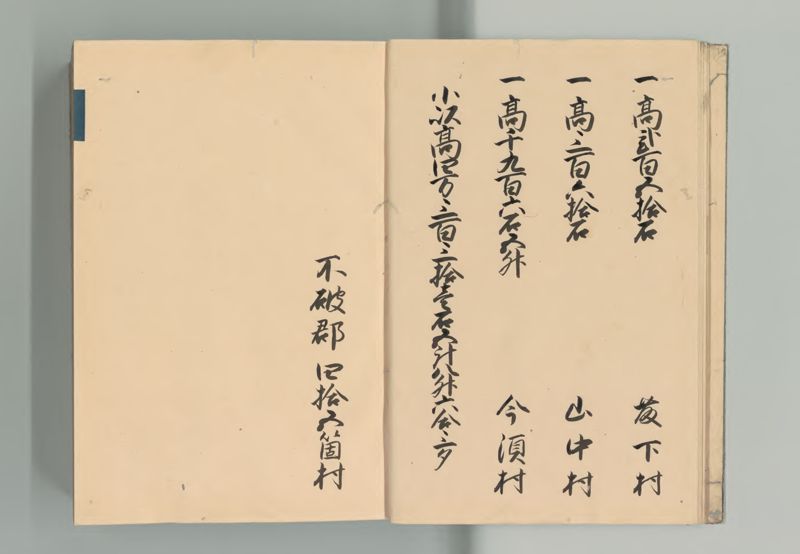 一高弐百五拾石 藤下村
一高三百六拾石 山中村
一高千九百六石五升 今須村
小以高四万三百三拾壱石五斗八升六合三夕
不破郡 四拾五箇村